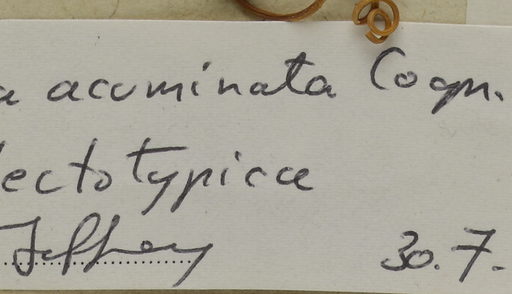 a acuminata Cogn.
lectotypicae
Jeffrey 30.7.